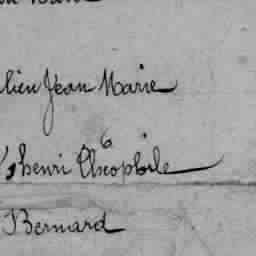 lien Jean Marie
henri Théophile
Bernard